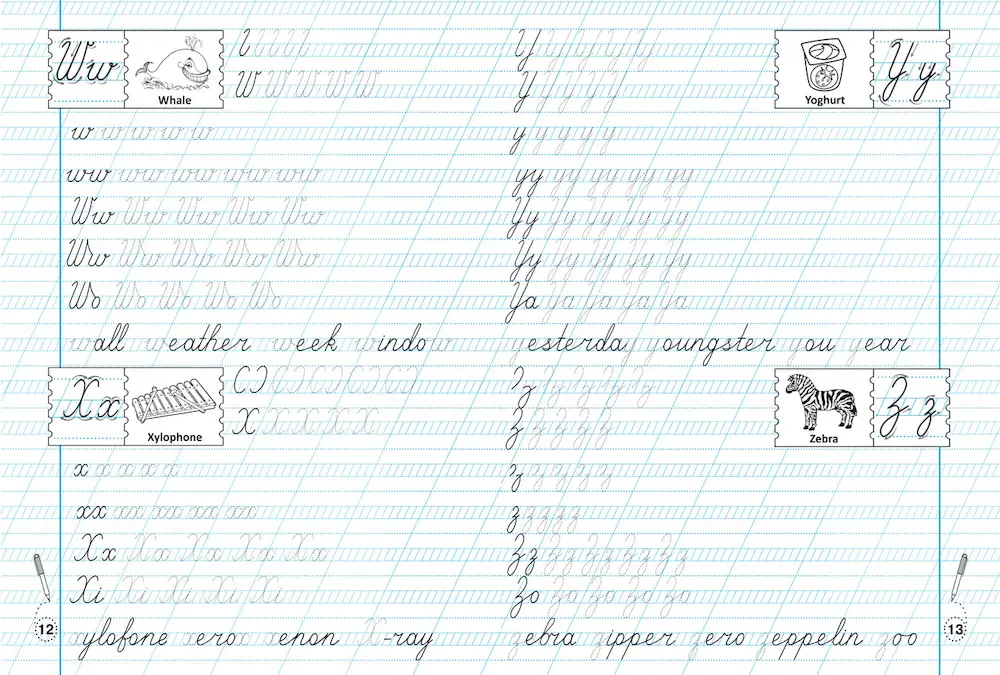 Ww
Whale
W W W W W W
w w w w w
ww ww ww ww ww
Ww Ww Ww Ww Ww
Wo Wo Wo Wo Wo
wall weather week window
Xx
Xylophone
X X X X X
x x x x x
xx xx xx xx xx
Xx Xx Xx Xx Xx
Xi Xi Xi Xi Xi
xylofone xerox xenon X-ray
12
Yy
Yoghurt
Y Y Y Y Y
y y y y y
yy yy yy yy yy
Yy Yy Yy Yy Yy
Yy Yy Yy Yy Yy
Ya Ya Ya Ya Ya
yesterday youngster you year
Zz
Zebra
Z Z Z Z Z
z z z z z
z z z z z
Zz Zz Zz Zz Zz
Zo Zo Zo Zo Zo
zebra zipper zero zeppelin zoo
13